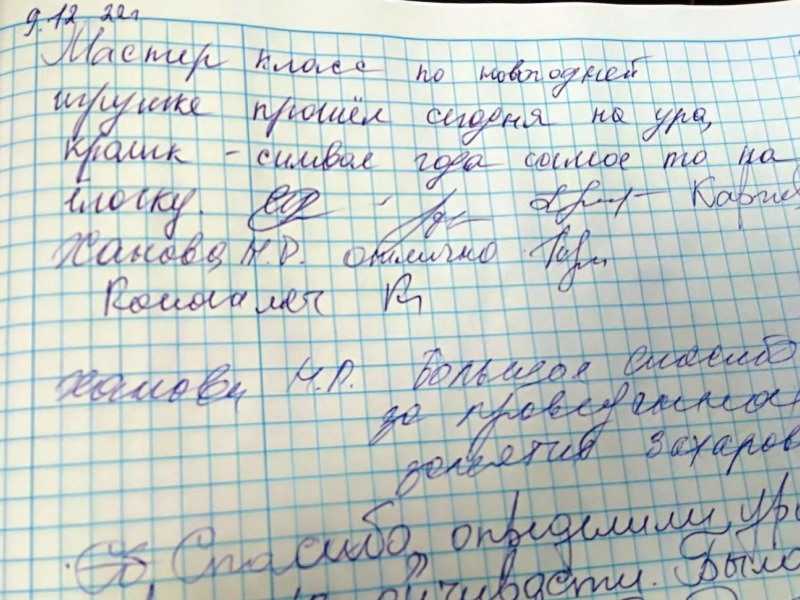 9.12 22г
Мастер класс по новогодней
игрушке прошёл сегодня на ура,
кролик - символ года самое то на
ёлочку.
Ханова Н.Р. отлично
Ханова Н.Р. Большое спасибо
за проведённое
занятие Захаров
Спасибо, определили ур
чивости. Было